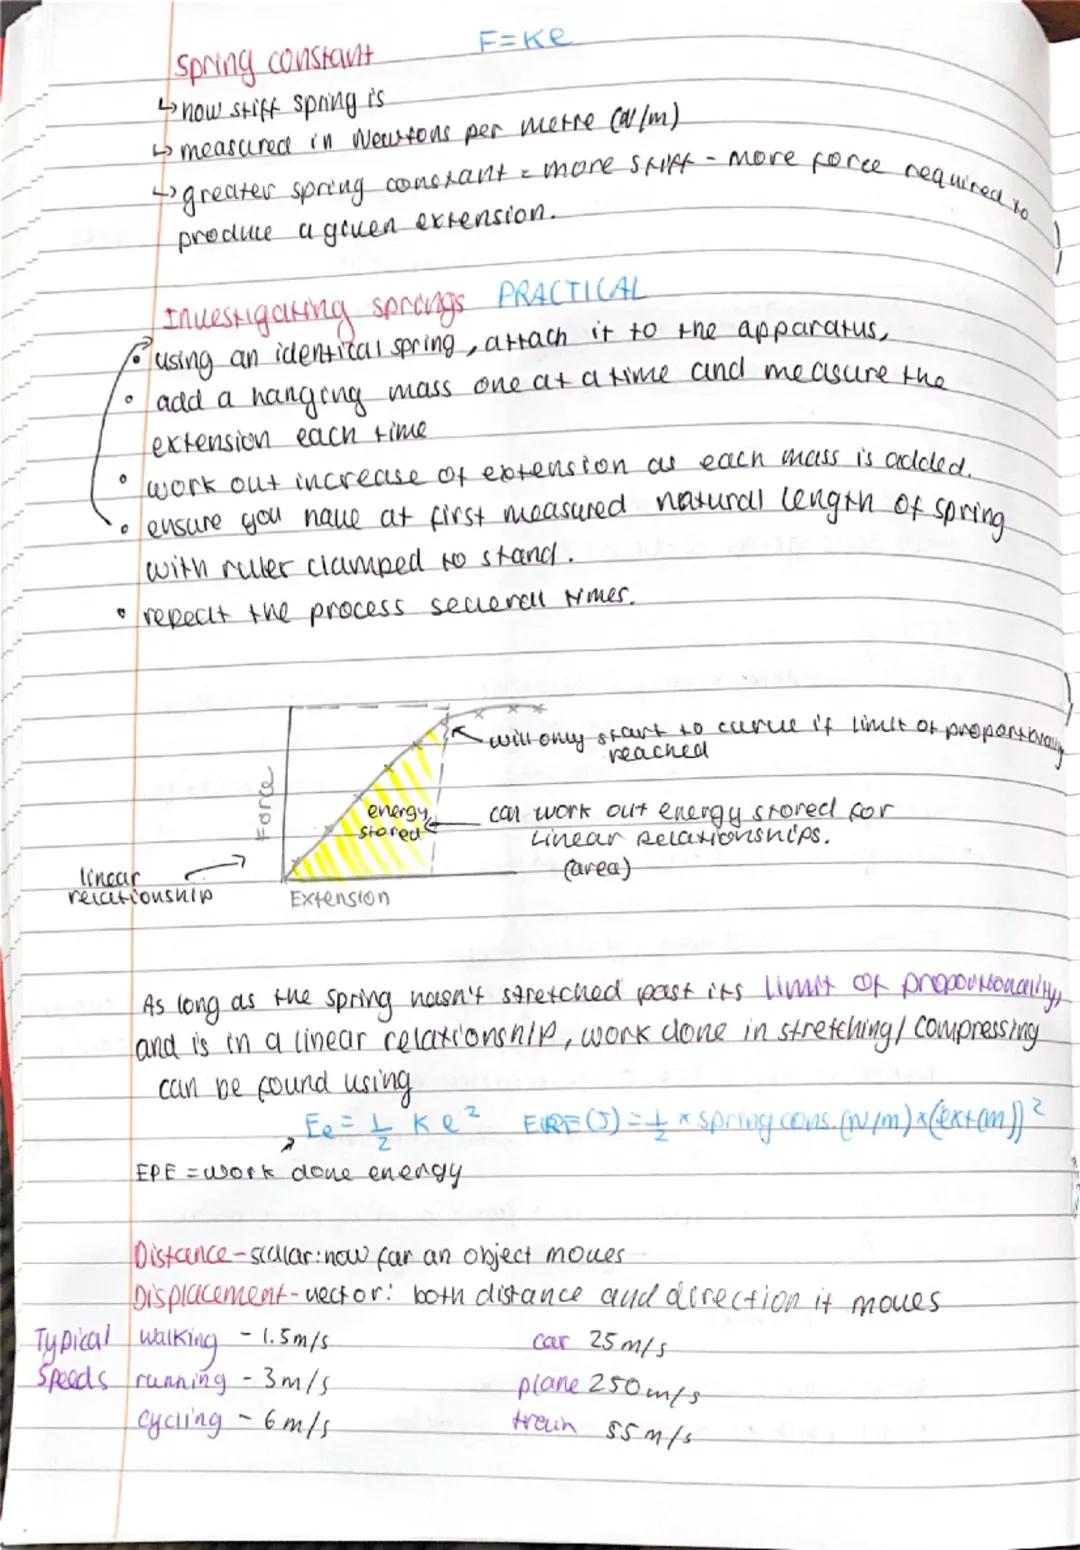 Spring constant F=Ke
↳ how stiff spring is
↳ measured in Newtons per metre (N/m)
↳ greater spring constant = more stiff - more force required to
produce a given extension.
Investigating springs PRACTICAL
• using an identical spring, attach it to the apparatus,
• add a hanging mass one at a time and measure the
extension each time
• work out increase of extension as each mass is added.
• ensure you have at first measured natural length of spring
with ruler clamped to stand.
• repeat the process several times.
will only start to curve if limit of proportionality
reached
Force
energy
stored
can work out energy stored for
Linear Relationships.
(area)
linear
relationship
Extension
As long as the spring hasn't stretched past its limit of proportionality,
and is in a linear relationship, work done in stretching/compressing
can be found using
Ee = 1/2 Ke² EPE (J) = 1/2 × spring cons. (N/m) × (ext(m))²
EPE = work done energy
Distance - scalar: how far an object moves
Displacement - vector: both distance and direction it moves
Typical walking - 1.5m/s car 25 m/s
Speeds running - 3m/s plane 250 m/s
cycling - 6 m/s train 55 m/s